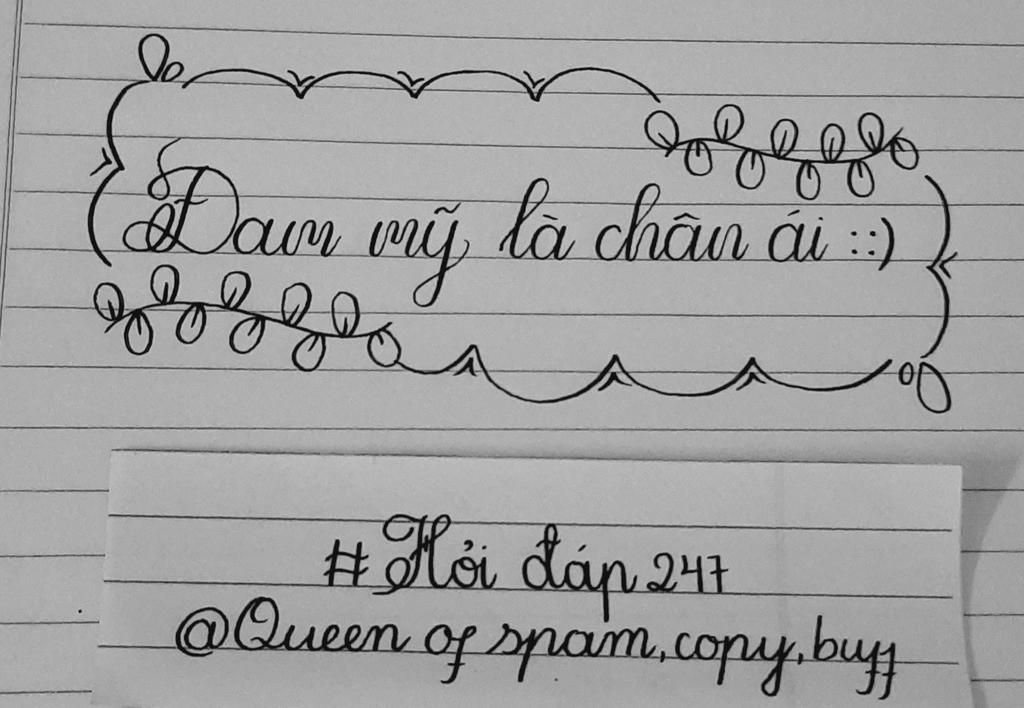 Đam mỹ là chân ái ::)
#Hỏi đáp 247
@Queen of spam, copy, buff